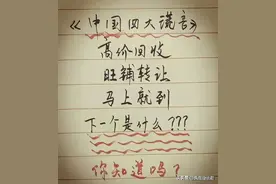 《中国四大谎言》
高价回收
旺铺转让
马上就到
下一个是什么???
你知道吗?